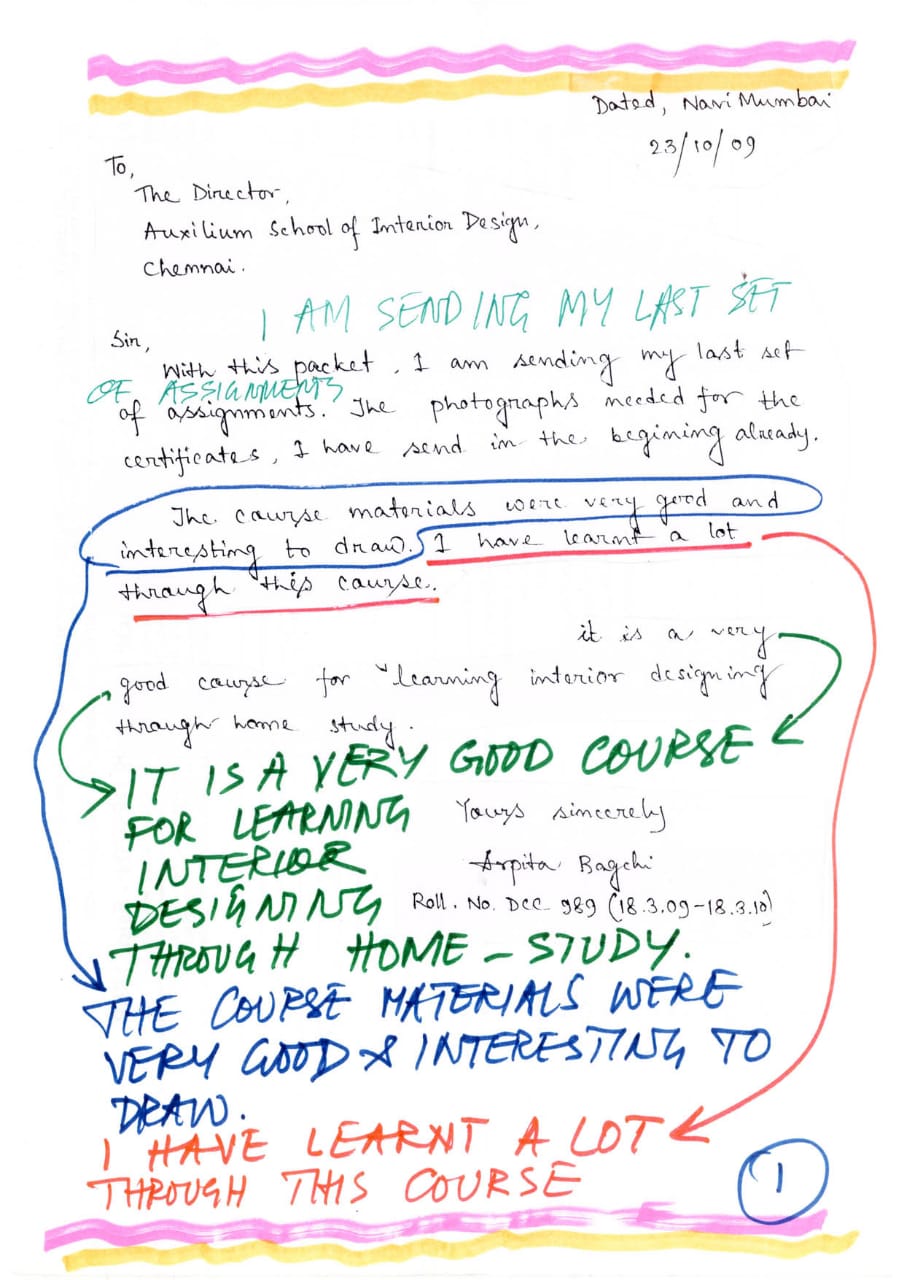 Dated, Navi Mumbai
23/10/09
To,
The Director,
Auxilium School of Interior Design,
Chennai.
I AM SENDING MY LAST SET
Sir,
With this packet, I am sending my last set
OF ASSIGNMENTS
of assignments. The photographs needed for the
certificates, I have send in the begining already.
The course materials were very good and
interesting to draw. I have learnt a lot
through this course.
it is a very
good course for "learning interior designing
through home study.
IT IS A VERY GOOD COURSE
FOR LEARNING Yours sincerely
INTERIOR Arpita Bagchi
DESIGNING Roll. No. DCC 989 (18.3.09-18.3.10)
THROUGH HOME - STUDY.
THE COURSE MATERIALS WERE
VERY GOOD & INTERESTING TO
DRAW.
I HAVE LEARNT A LOT
THROUGH THIS COURSE
1